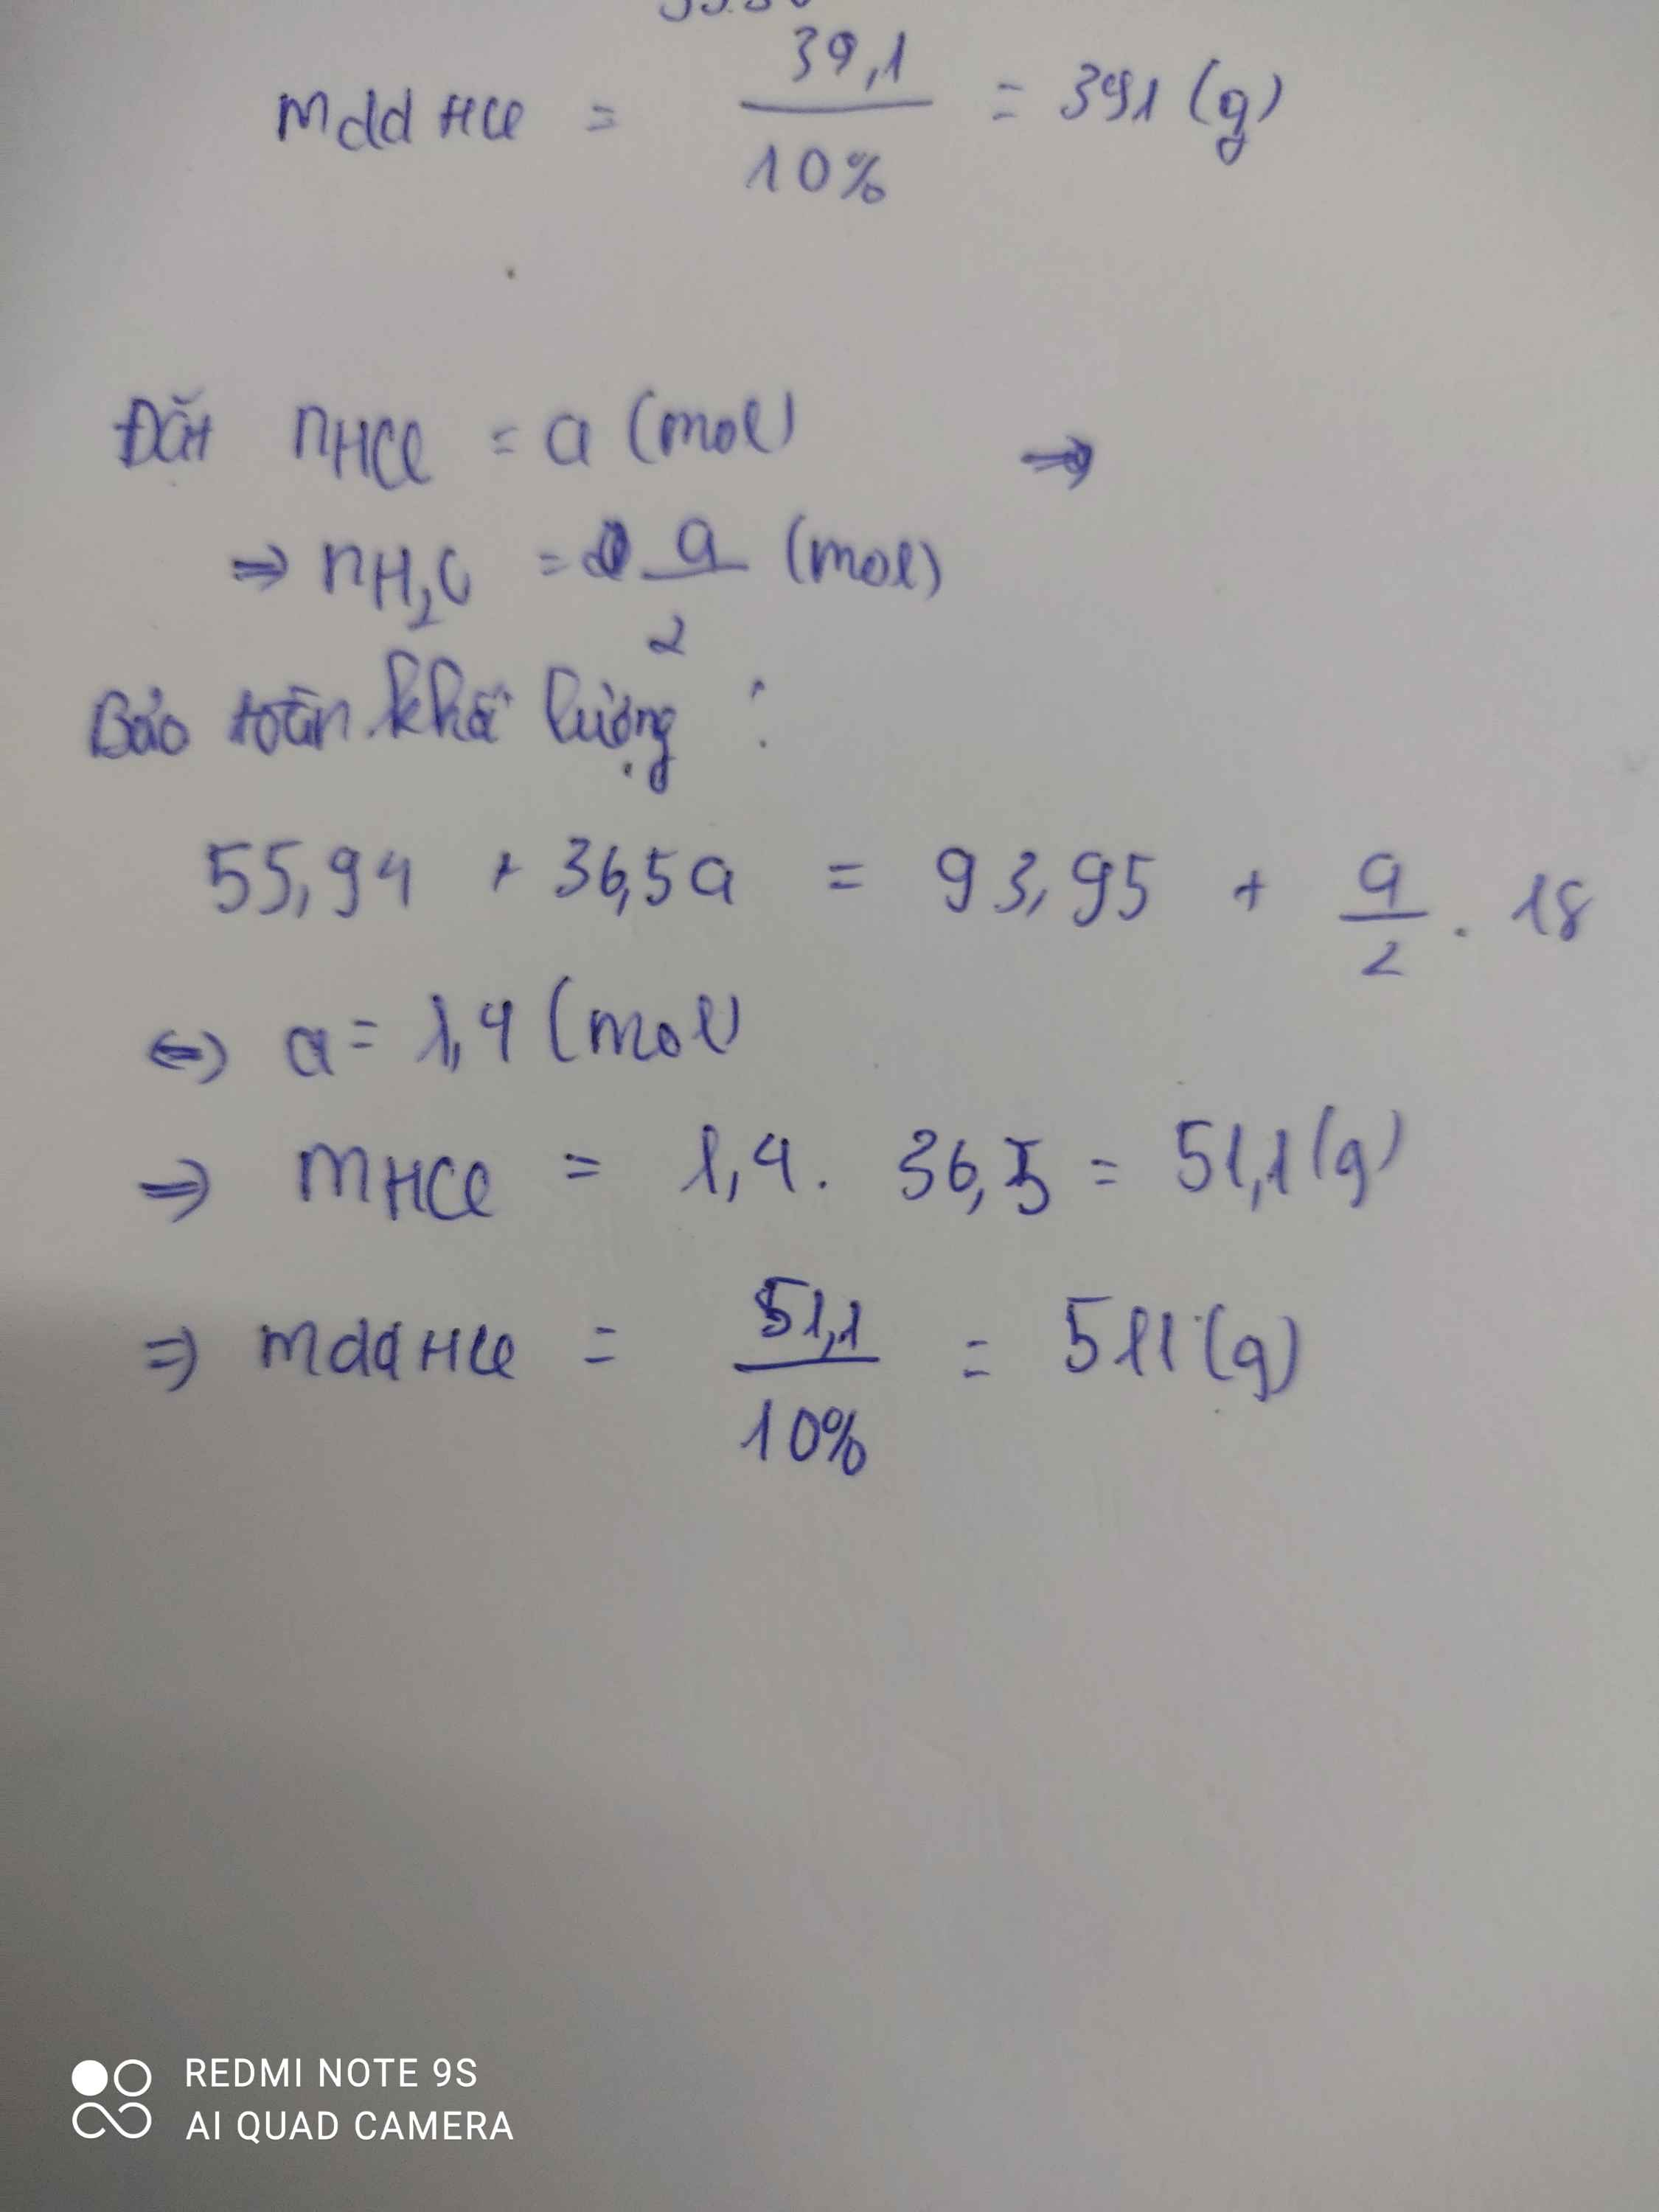 mdd HCl = 39,1 / 10% = 391 (g)
Đặt nHCl = a (mol) ⇒
⇒ nH₂O = a/2 (mol)
Bảo toàn khối lượng :
55,94 + 36,5a = 93,95 + a/2 . 18
⇔ a = 1,4 (mol)
⇒ mHCl = 1,4 . 36,5 = 51,1 (g)
⇒ mdd HCl = 51,1 / 10% = 511 (g)
REDMI NOTE 9S
AI QUAD CAMERA